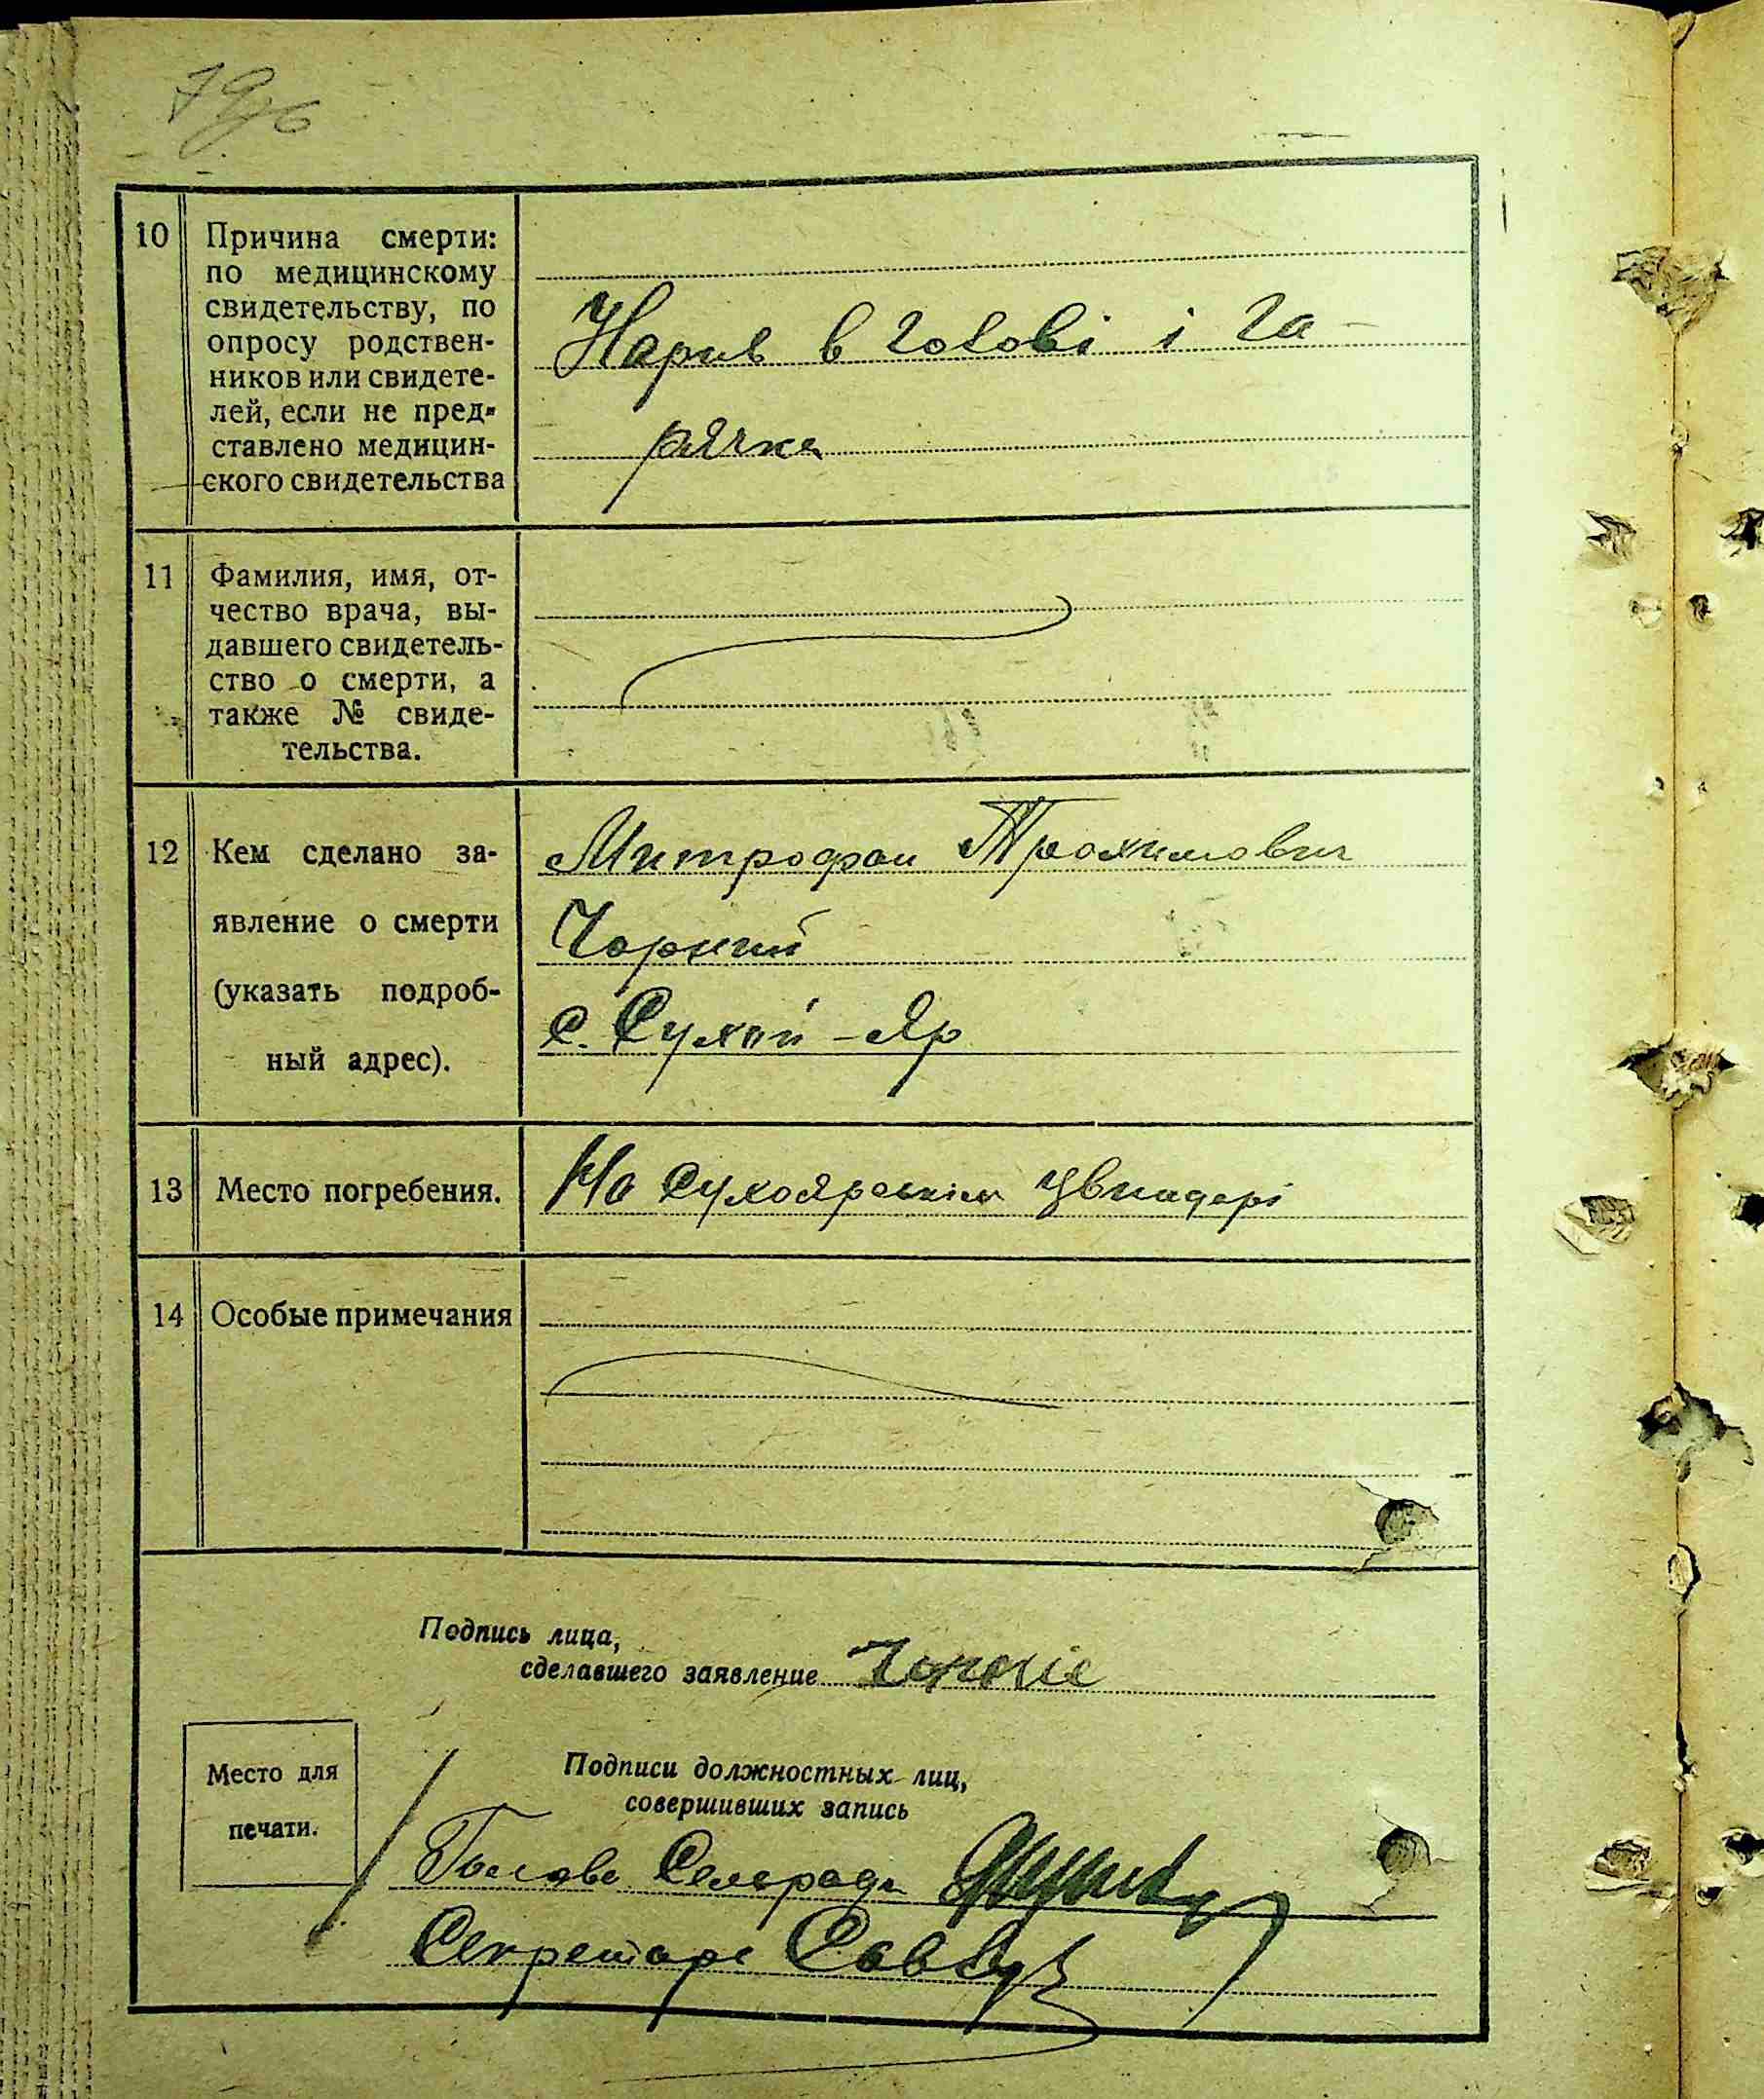 79об
10 Причина смерти:
по медицинскому
свидетельству, по
опросу родствен-
ников или свидете-
лей, если не пред-
ставлено медицин-
ского свидетельства
Нарив в голові і га-
рячка
11 Фамилия, имя, от-
чество врача, вы-
давшего свидетель-
ство о смерти, а
также № свиде-
тельства.
12 Кем сделано за-
явление о смерти
(указать подроб-
ный адрес).
Митрофан Трохимович
Чорний
с. Сухой-Яр
13 Место погребения.
На Сухоярськім цвинтері
14 Особые примечания
Подпись лица,
сделавшего заявление
Место для
печати.
Подписи должностных лиц,
совершивших запись
Голова Сельради
Секретарь